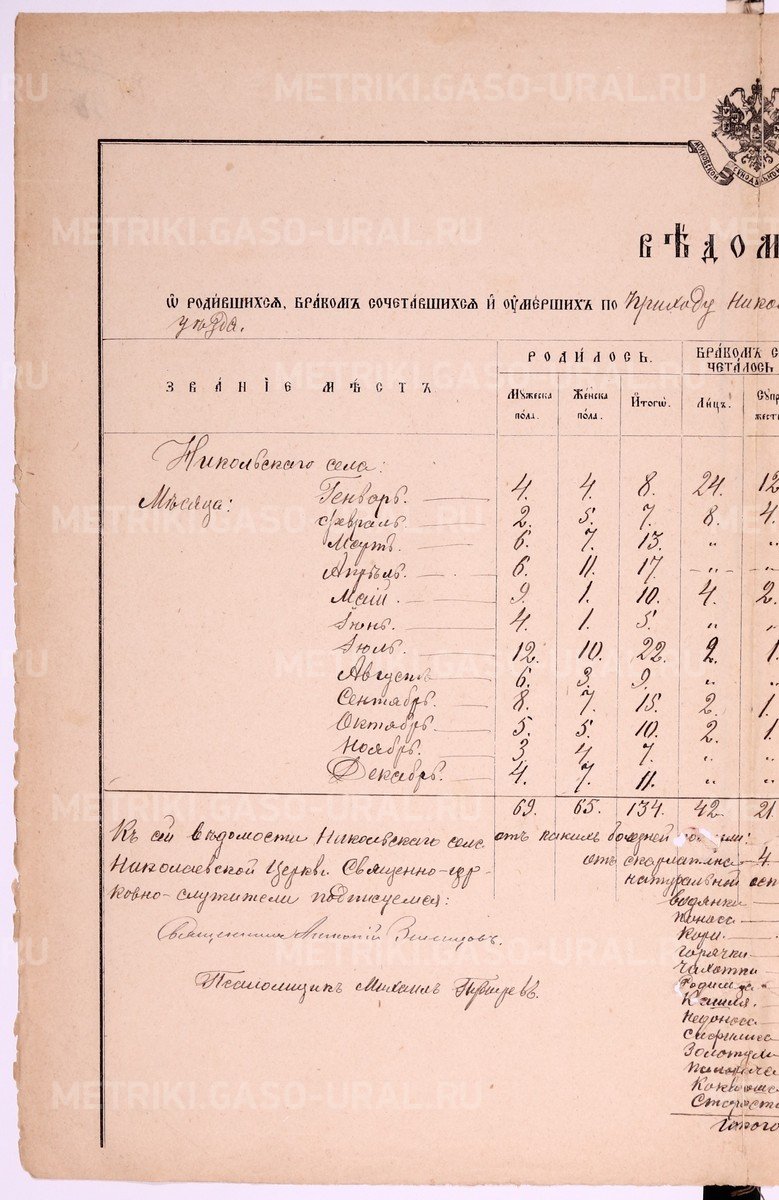 METRIKI.GASO-URAL.RU
МОСКОВСКОЙ СѴНОДАЛЬНОЙ
ВѢДОМ
Ѡ РОДИ́ВШИХСЯ, БРА́КОМЪ СОЧЕТА́ВШИХСЯ И҆ ОУ҆МЕ́РШИХЪ ПО приходу Нико
уѣзда.
ЗВА́НІЕ МѢ́СТЪ.
РОДИ́ЛОСЬ.
БРА́КОМЪ СО
ЧЕТА́ЛОСЬ
Мꙋ́жеска по́ла.
Же́нска по́ла.
И҆того̀.
Ли́цъ.
Сꙋпр
жеств
Никольскаго села:
Мѣсяца: Генварь. 4. 4. 8. 24. 12
Февраль 2. 5. 7. 8. 4.
Мартъ. 6. 7. 13. „ „
Апрѣль. 6. 11. 17. „ „
Маій. 9. 1. 10. 4. 2.
Іюнь. 4. 1. 5. „ „
Іюль. 12. 10. 22. 2. 1.
Августъ 6. 3. 9. „ „
Сентябрь. 8. 7. 15. 2. 1.
Октябрь. 5. 5. 10. 2. 1
Ноябрь. 3 4. 7. „ „
Декабрь. 4. 7. 11. „ „
69. 65. 134. 42. 21.
Къ сей вѣдомости Никольскаго села
Николаевской Церкви Священно-цер-
ковно-служители подписуемся:
Священникъ
Псаломщикъ Михаилъ
отъ какихъ болѣзней
отъ скарлатины 4.
натуральной осп
водянки
поноса
Кори.
горячки
чахотки
Родимца
Кашля.
недоноса
сифилиса
Золотухи
Старости
Итого